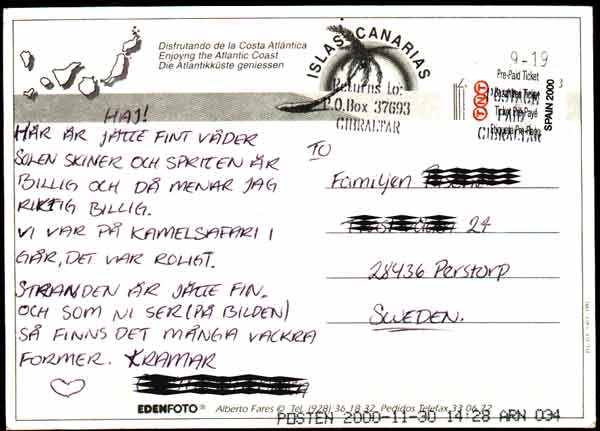 Disfrutando de la Costa Atlántica
Enjoyng the Atlantic Coast
Die Atlantikküste geniessen
ISLAS CANARIAS
Returns to:
P.O.Box 37693
GIBRALTAR
9-19
Pre-Paid Ticket
TNT
SPAIN 2000
HAJ!
HÄR ÄR JÄTTE FINT VÄDER
SOLEN SKINER OCH SPRITEN ÄR
BILLIG OCH DÅ MENAR JAG
RIKTIG BILLIG.
VI VAR PÅ KAMELSAFARI I
GÅR, DET VAR ROLIGT.
STRANDEN ÄR JÄTTE FIN.
OCH SOM NI SER (PÅ BILDEN)
SÅ FINNS DET MÅNGA VACKRA
FORMER. KRAMAR
TO
Familjen
24
28436 Perstorp
SWEDEN.
EDENFOTO® Alberto Fares © Tel. (928) 36 18 32 Pedidos Telefax 33 06 32
POSTEN 2000-11-30 14:28 ARN 034